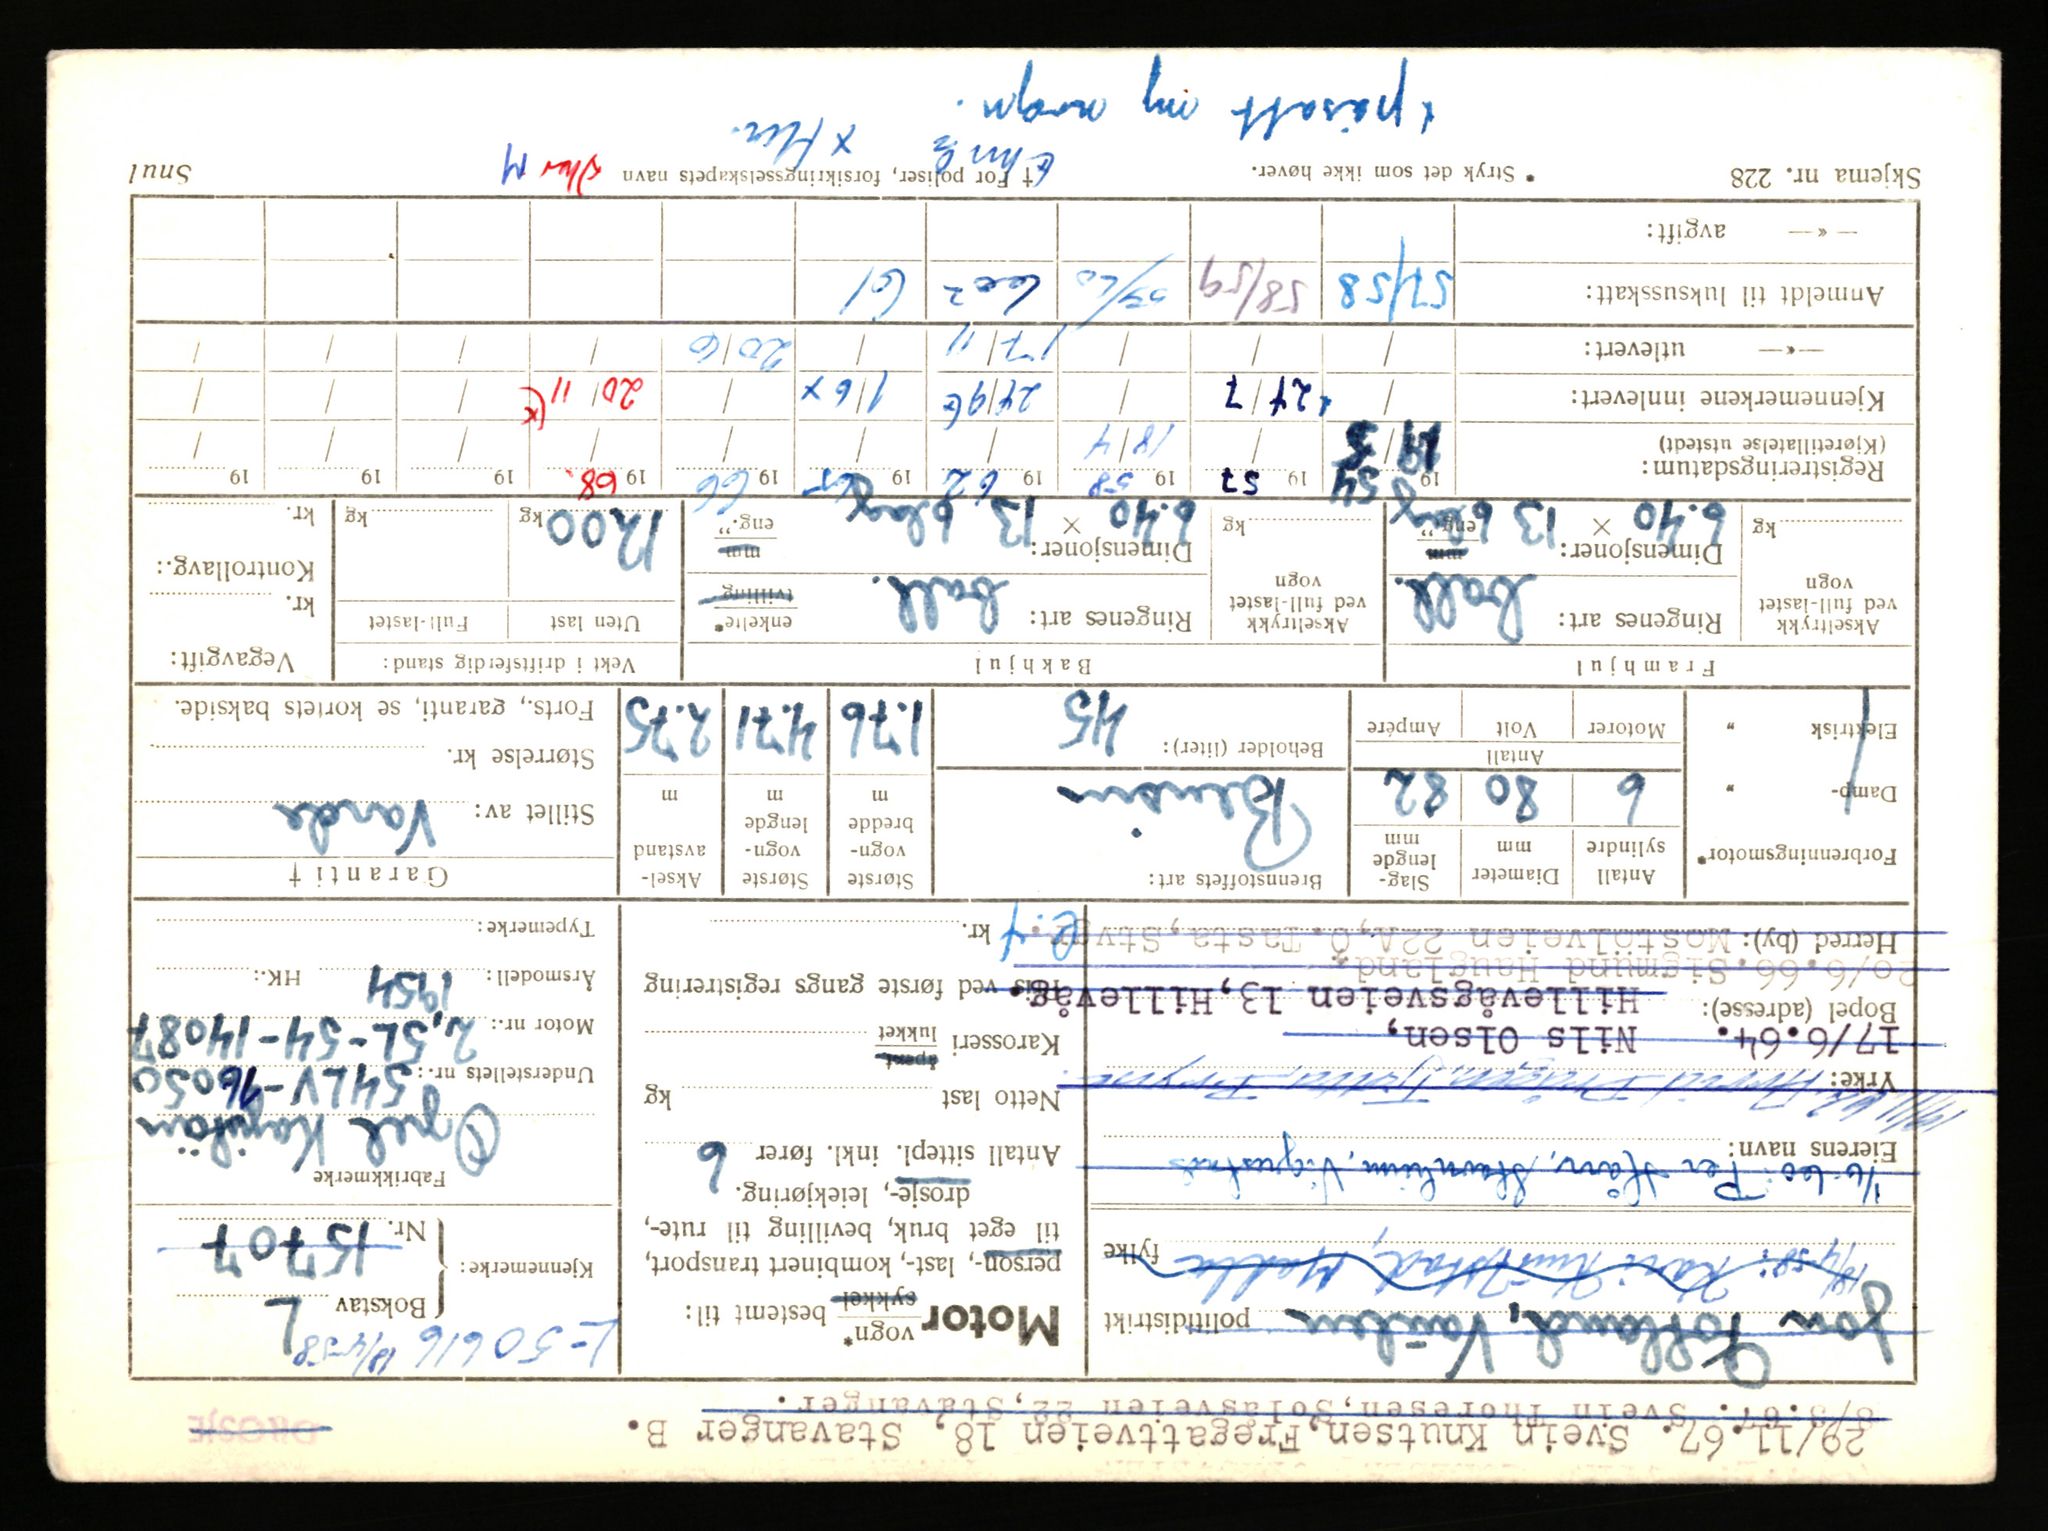 29/11.67. Svein Knutsen, Fregattveien 18, Stavanger B.
8/3.67. Svein Thoresen, Solasveien 22, Stavanger.
DROSJE
L-50616 18/4-58
Jon Folland, Vaulen
politidistrikt
18/4-58: Kari
fylke
Motor vogn* sykkel bestemt til:
person-, last-, kombinert transport,
til eget bruk, bevilling til rute-,
drosje-, leiekjøring.
Kjennemerke: Bokstav L
Nr. 15707
Eierens navn:
Per Håar,
Antall sittepl. inkl. fører 6
Fabrikkmerke
Opel Kapitän
Yrke:
Netto last kg
Understellets nr.: 54LV-76050
17/6.64. Nils Olsen,
Karosseri åpent lukket
Motor nr.: 2,5L-54-14087
Bopel (adresse):
Hillevågsveien 13, Hillevåg.
Pris ved første gangs registrering
Årsmodell: 1954 HK.:
20/6.66. Sigmund Haugland.
Herred (by): Mostølveien 22A, Ø. Tasta, Stvgr.
kr.
Typemerke:
Forbrenningsmotor*
Antall sylindre
Diameter mm
Slag- lengde mm
Brennstoffets art:
Største vogn- bredde m
Største vogn- lengde m
Aksel- avstand m
Garanti †
Damp- „
6 80 82
Bensin
Stillet av: Varde
Antall
Størrelse kr.
Elektrisk „
Motorer Volt Ampére
Beholder (liter): 45
1.76 4.71 2.75
Forts., garanti, se kortets bakside.
Framhjul
Bakhjul
Vekt i driftsferdig stand:
Vegavgift:
Akseltrykk ved full-lastet vogn
Ringenes art: ball.
Akseltrykk ved full-lastet vogn
Ringenes art: ball.
enkelte* tvilling
Uten last Full-lastet
kr.
kg
Dimensjoner: mm
6.40 × 13 6 lag eng.”
kg
Dimensjoner: mm
6.40 × 13, 6 lag eng.”
1200 kg kg
Kontrollavg.:
kr.
Registreringsdatum:
(Kjøretillatelse utstedt)
1954 1957 1958 1962 1965 1966 1968. 19 19 19
18/4
Kjennemerkene innlevert:
24/7 24/9 1/6 x 20/11
—«— utlevert:
17/11 20/6
Anmeldt til luksusskatt:
57/58 58/59 59/60 61
—«— avgift:
Skjema nr. 228
* Stryk det som ikke høver.
† For poliser, forsikringsselskapets navn
Snul
påsatt ny vogn.